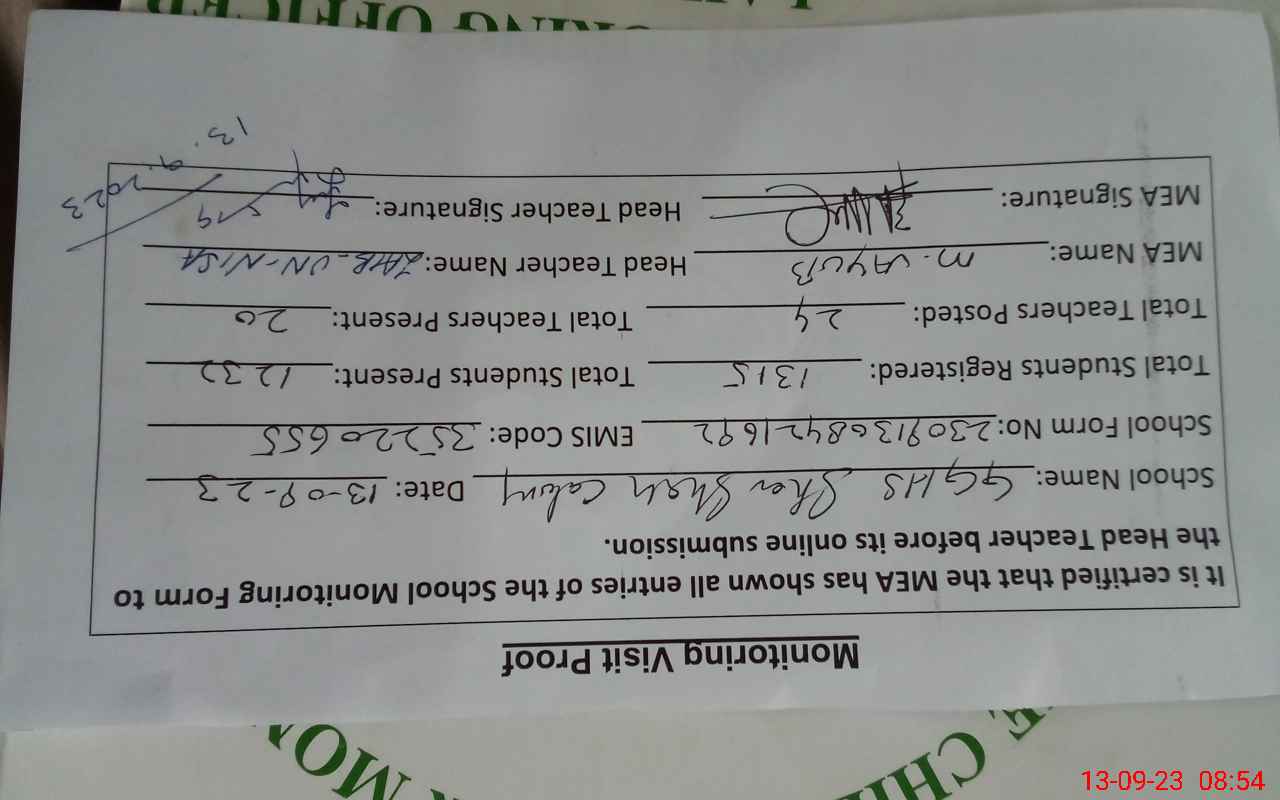 Monitoring Visit Proof
It is certified that the MEA has shown all entries of the School Monitoring Form to
the Head Teacher before its online submission.
School Name: GGHS Sher Shah Colony Date: 13-09-23
School Form No: 230913084221692 EMIS Code: 35220655
Total Students Registered: 1315 Total Students Present: 1232
Total Teachers Posted: 24 Total Teachers Present: 20
MEA Name: M. AYUB Head Teacher Name: ZAIB-UN-NISA
MEA Signature: Head Teacher Signature:
13.9.2023
13-09-23 08:54